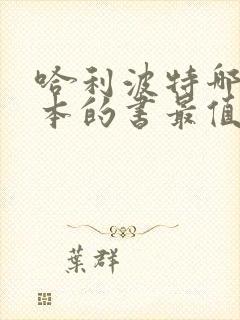 哈利波特哪
本的书最值
葉群